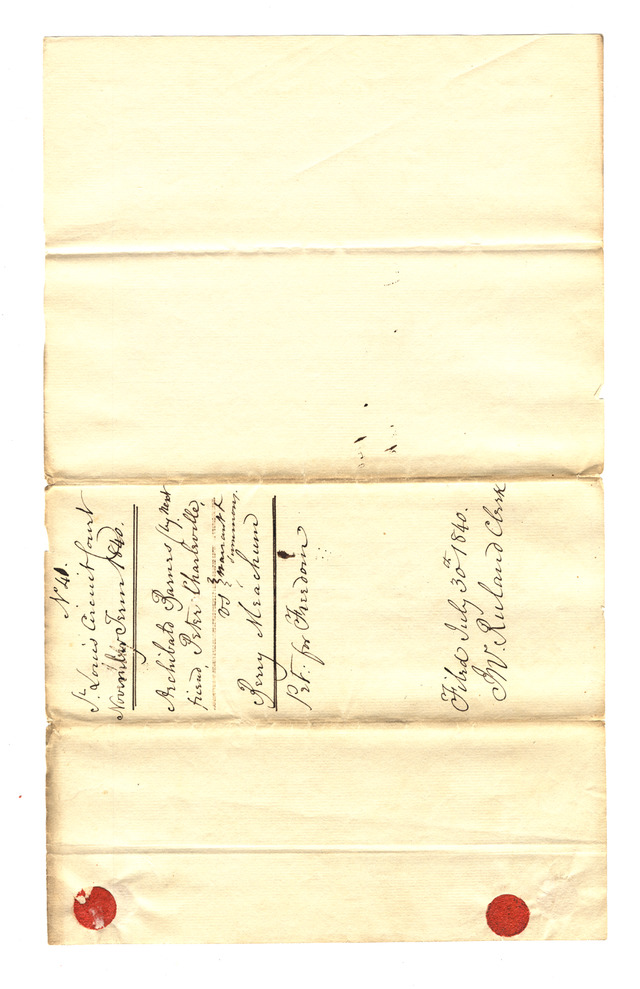 No 41.
St. Louis Circuit Court
November Term 1840.
Archibald Barnes by next
friend, Peter Charleville,
vs } warrant &
summons,
Berry Meachum
Pet. for Freedom
Filed July 30th 1840.
Jno. Ruland Clerk